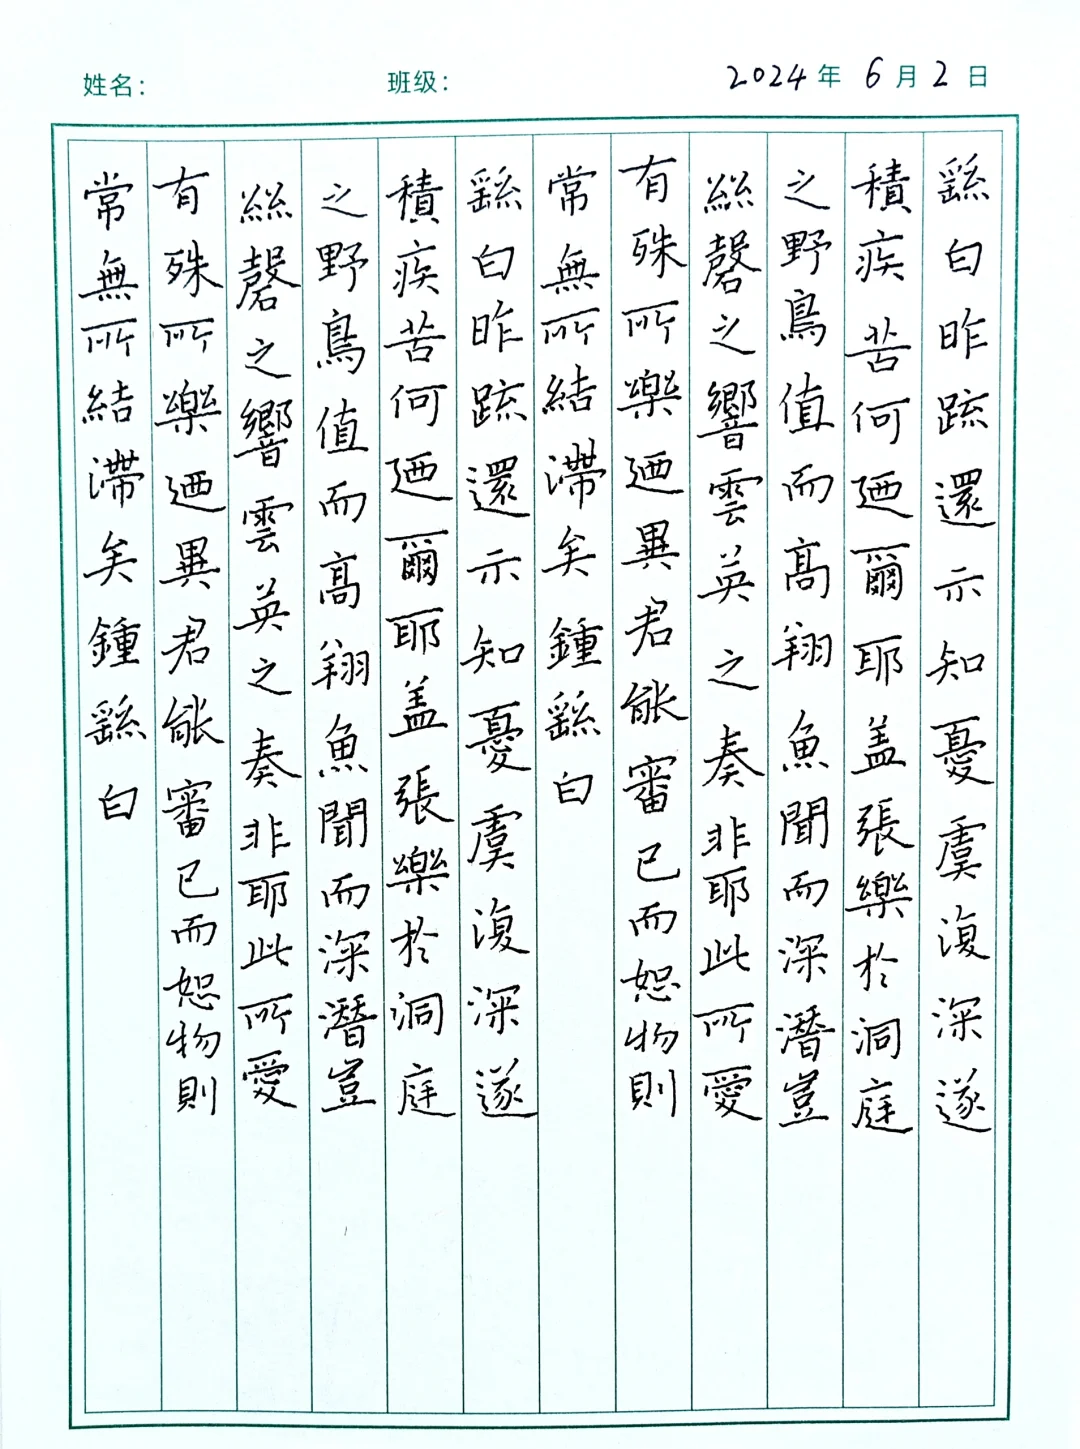 姓名： 班级： 2024年6月2日
繇白昨疏還示知憂虞復深遂
積疾苦何迺爾耶盖張樂於洞庭
之野鳥值而高翔魚聞而深潛豈
絲磬之響雲英之奏非耶此所愛
有殊所樂迺異君能審己而恕物則
常無所結滯矣鍾繇白
繇白昨疏還示知憂虞復深遂
積疾苦何迺爾耶盖張樂於洞庭
之野鳥值而高翔魚聞而深潛豈
絲磬之響雲英之奏非耶此所愛
有殊所樂迺異君能審己而恕物則
常無所結滯矣鍾繇白